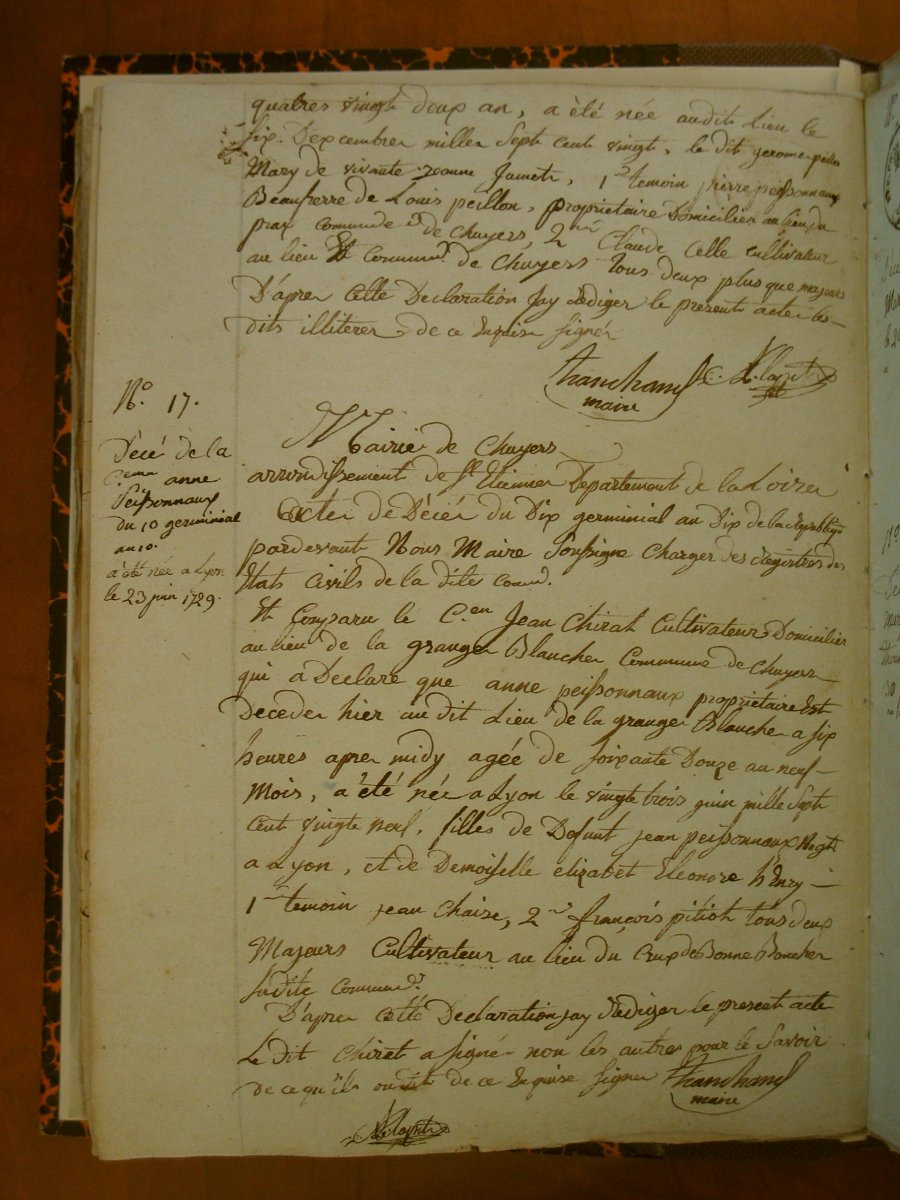 quatres vingt deux an, a été née audit Lieu le
six Dexcembre miller Sept Cent vingt, le dit gerome peillon
Mary de vivante jeanne Jamet, 1er temoin pierre peissonnaux
Beaufrerre de Louis peillon, proprietaire Domicilier au lieu du
prax commune de Chuyers, 2me Claude Celle cultivateur
au lieu Et Commun. de Chuyers tous deux plus que majeurs
D'aprer Cette Declaration Jay Rediger le present acter les
dits illiterer de ce Enquise signér
tranchand
maire
N° 17.
Décé de la
Cenne anne
Peissonnaux
du 10 germinial
an 10.
a été née a Lyon
le 23 juin 1729.
Mairie de Chuyers
arrondissement de St Etienner Departement de la Loirer
Acter de Décér du Dix germinial an Dix de la Republique
pardevant Nous Maire Soussigne Charger des Registres des
Etats Civils de la dite Comm.
Et Comparu le C.en Jean Chirat Cultivateur Domicilier
au lieu de la granger Blancher Commune de Chuyers
qui a Declare que anne peissonnaux proprietaire Est
Deceder hier au dit Lieu de la granger Blancher a six
heures aprer midy agée de soixante Douze an neuf
Mois, a été née a Lyon le vingt trois juin mille Sept
Cent vingte neuf, filles de Defunt jean peissonnaux Negt
a Lyon, et de Demoiselle elizabet Eleonore hEnry
1er temoin jean Chaize, 2me françois pitiot tous deux
Majeurs Cultivateur au lieu du Crux de Bonne Boucher
Sudite Commun.
D'aprer cette Declaration jay Rediger le present acte
Le dit Chiret a signér non les autres pour le Savoir
de ce qu'ils ont dit de ce Enquise signer tranchand
maire